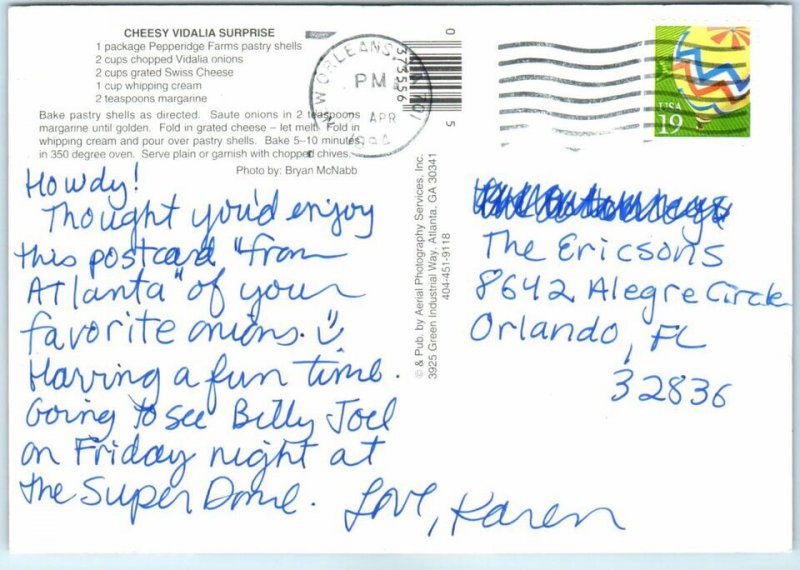 CHEESY VIDALIA SURPRISE
1 package Pepperidge Farms pastry shells
2 cups chopped Vidalia onions
2 cups grated Swiss Cheese
1 cup whipping cream
2 teaspoons margarine
Bake pastry shells as directed. Saute onions in 2 teaspoons
margarine until golden. Fold in grated cheese – let melt. Fold in
whipping cream and pour over pastry shells. Bake 5–10 minutes
in 350 degree oven. Serve plain or garnish with chopped chives.
Photo by: Bryan McNabb
Howdy!
Thought you'd enjoy
this postcard "from
Atlanta" of your
favorite onions.
Having a fun time.
Going to see Billy Joel
on Friday night at
the Super Dome.
Love, Karen
NEW ORLEANS, LA 701
PM
APR
0
373556
5
© & Pub. by Aerial Photography Services, Inc.
3925 Green Industrial Way, Atlanta, GA 30341
404-451-9118
USA
19
The Ericsons
8642 Alegre Circle
Orlando, FL
32836